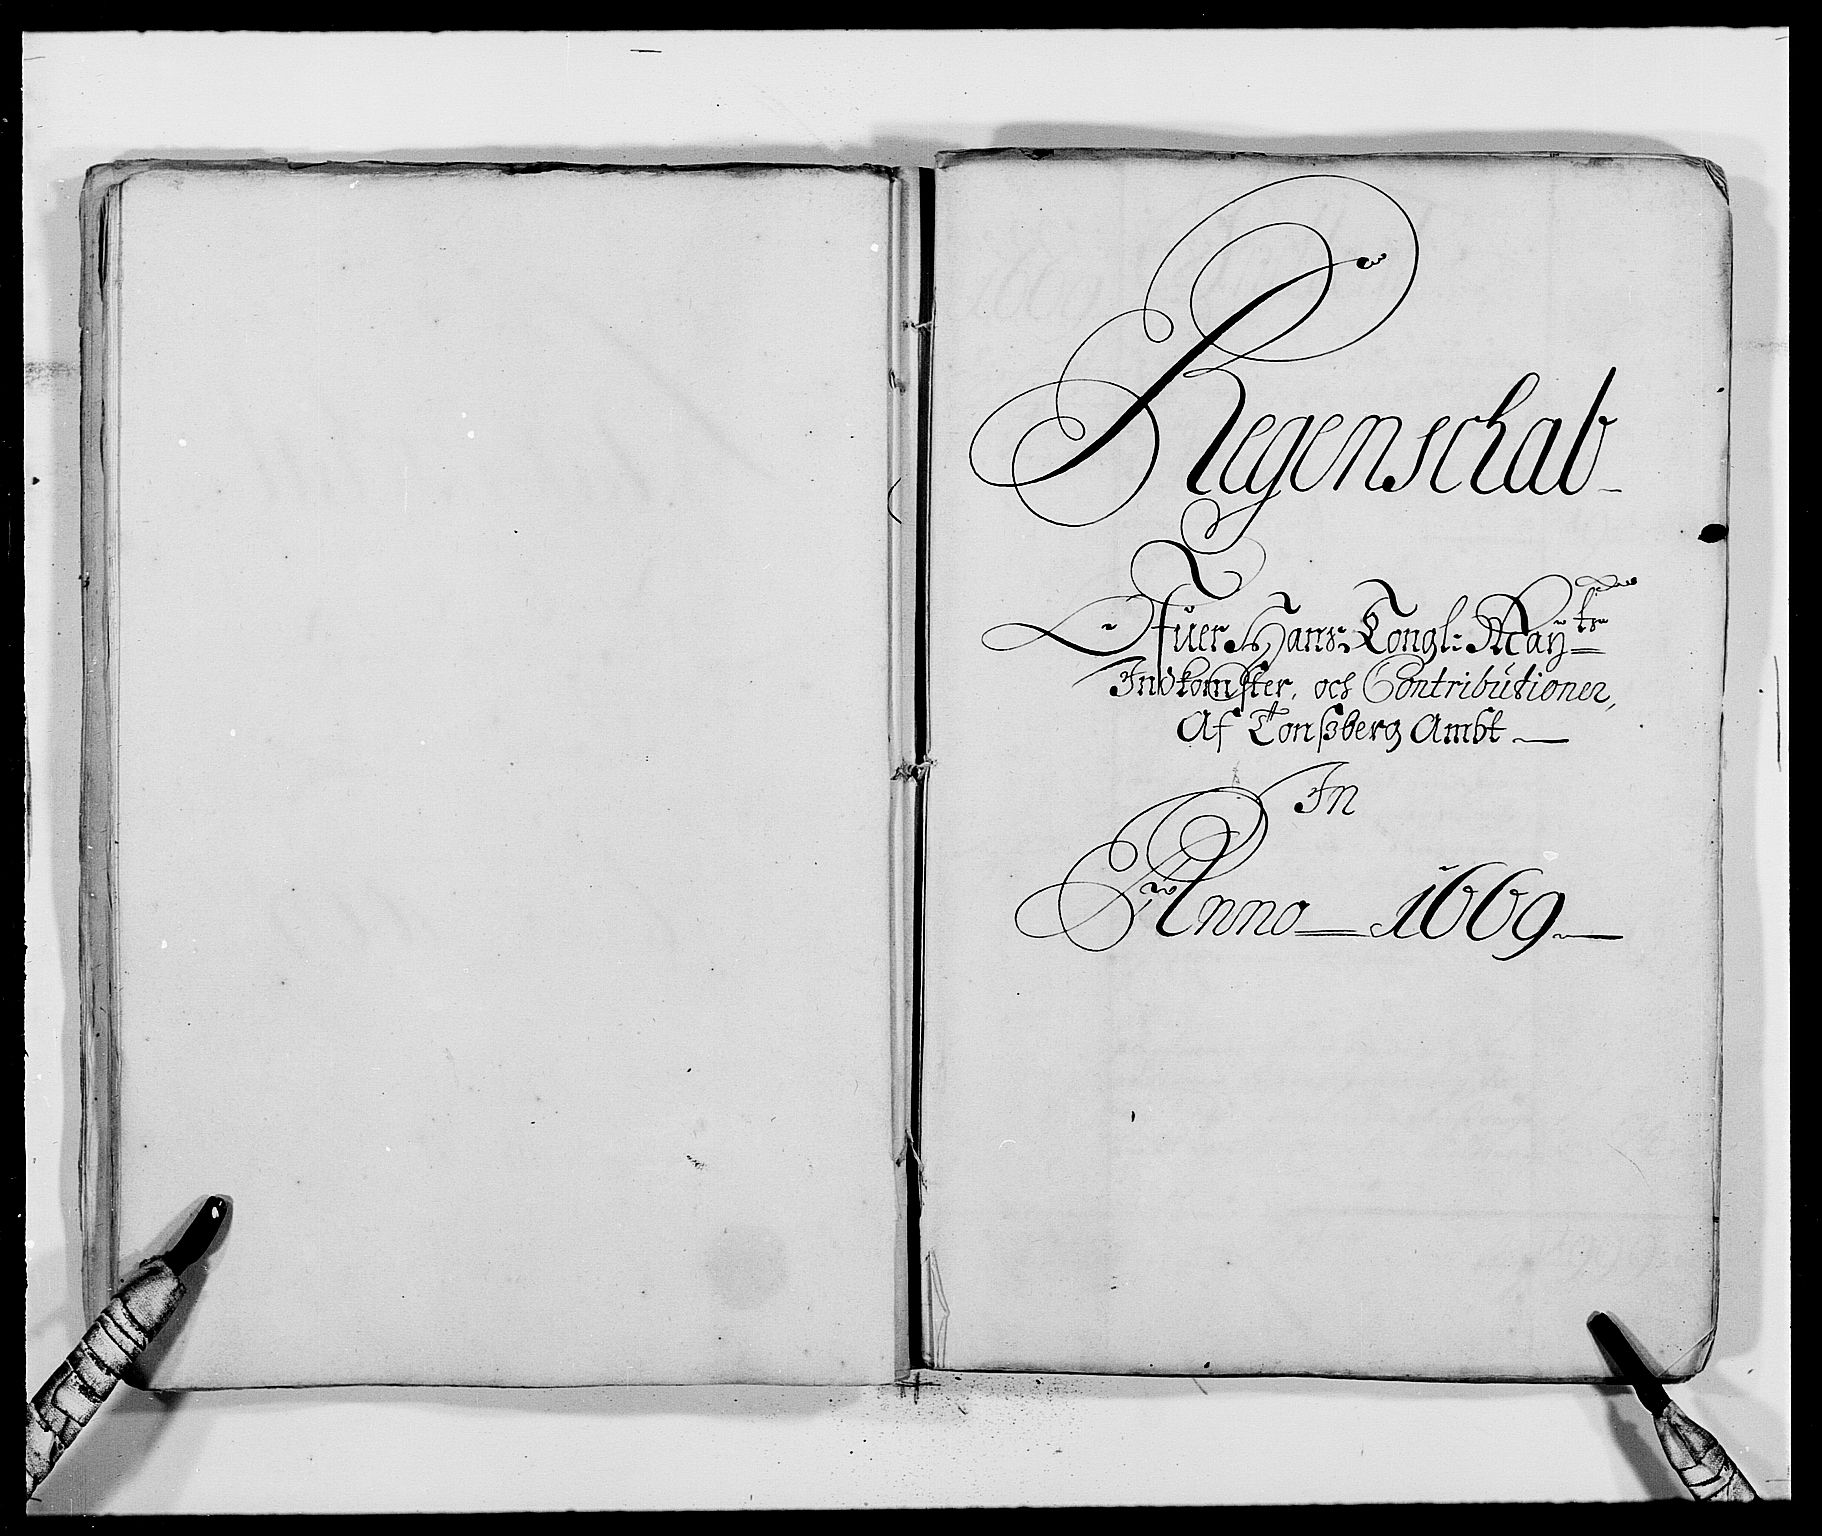 Regenschab
Ofuer Hans Kongl: Maytz
Indkomster, och Contributioner,
Af Tonsberg Ambt
In
Anno 1669